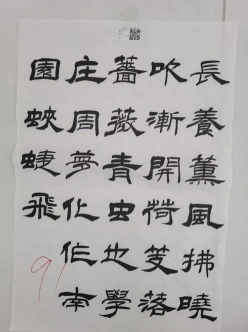 長養薰風拂曉
吹漸開荷芰落
薔薇青虫也學
庄周夢化作南
園蛺蜨飛
91